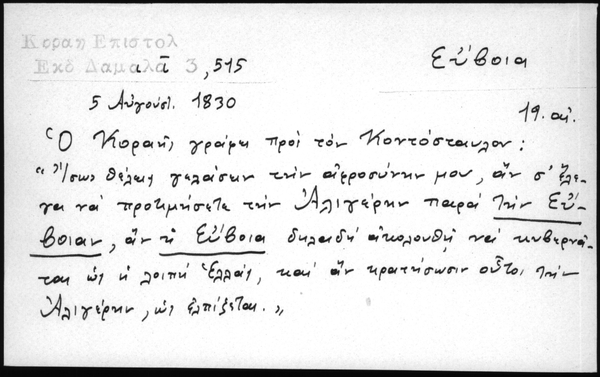 Κοραη Επιστολ
Εκδ Δαμαλα 3, 515
Εὔβοια
5 Αὐγούστ. 1830
19. αἰ.
Ὁ Κοραῆς γράφει πρὸς τὸν Κοντόσταυλον:
"Ἴσως θέλεις γελάσειν τὴν ἀφροσύνην μου, ἂν σ' ἔλε-
γα νὰ προτιμήσετε τὴν Ἀλιγέρην παρὰ τὴν Εὔ-
βοιαν, ἂν ἡ Εὔβοια δηλαδὴ ἀκολουθῇ νὰ κυβερνᾶ-
ται ὡς ἡ λοιπὴ Ἑλλάς, καὶ ἂν κρατήσωσιν οὗτοι τὴν
Ἀλιγέρην, ὡς ἐλπίζεται."